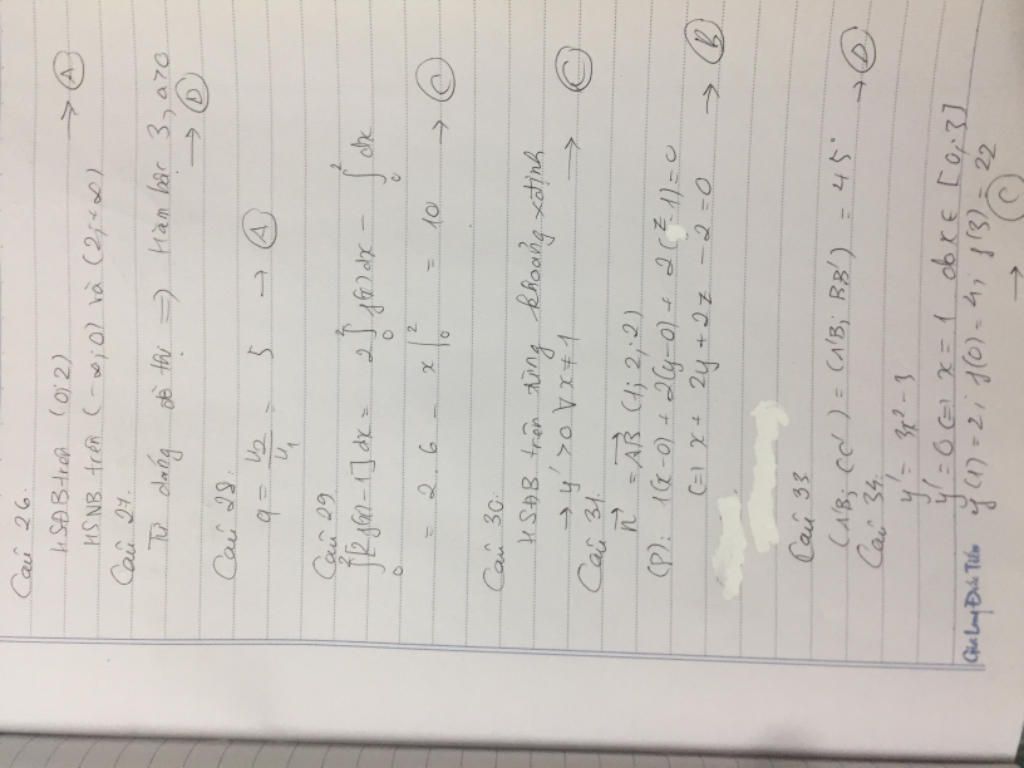 Câu 26.
HSĐB trên (0;2)
HSNB trên (-∞;0) và (2;+∞) → A
Câu 27.
Từ dáng đồ thị => Hàm bậc 3, a>0
→ D
Câu 28.
q = u₂/u₁ = 5 → A
Câu 29
∫₀² [2f(x)-1]dx = 2∫₀² f(x)dx - ∫₀² dx
= 2.6 - x|₀² = 10 → C
Câu 30.
HSĐB trên từng khoảng xđịnh
→ y' > 0 ∀ x ≠ 1 → C
Câu 31.
n⃗ = AB⃗ (1; 2; 2)
(P): 1(x-0) + 2(y-0) + 2(z-1) = 0
(=) x + 2y + 2z - 2 = 0 → B
Câu 33
(A'B; CC') = (A'B; BB') = 45° → D
Câu 34.
y' = 3x² - 3
y' = 0 (=) x = 1 do x ∈ [0;3]
y(1) = 2; f(0) = 4; f(3) = 22
→ C